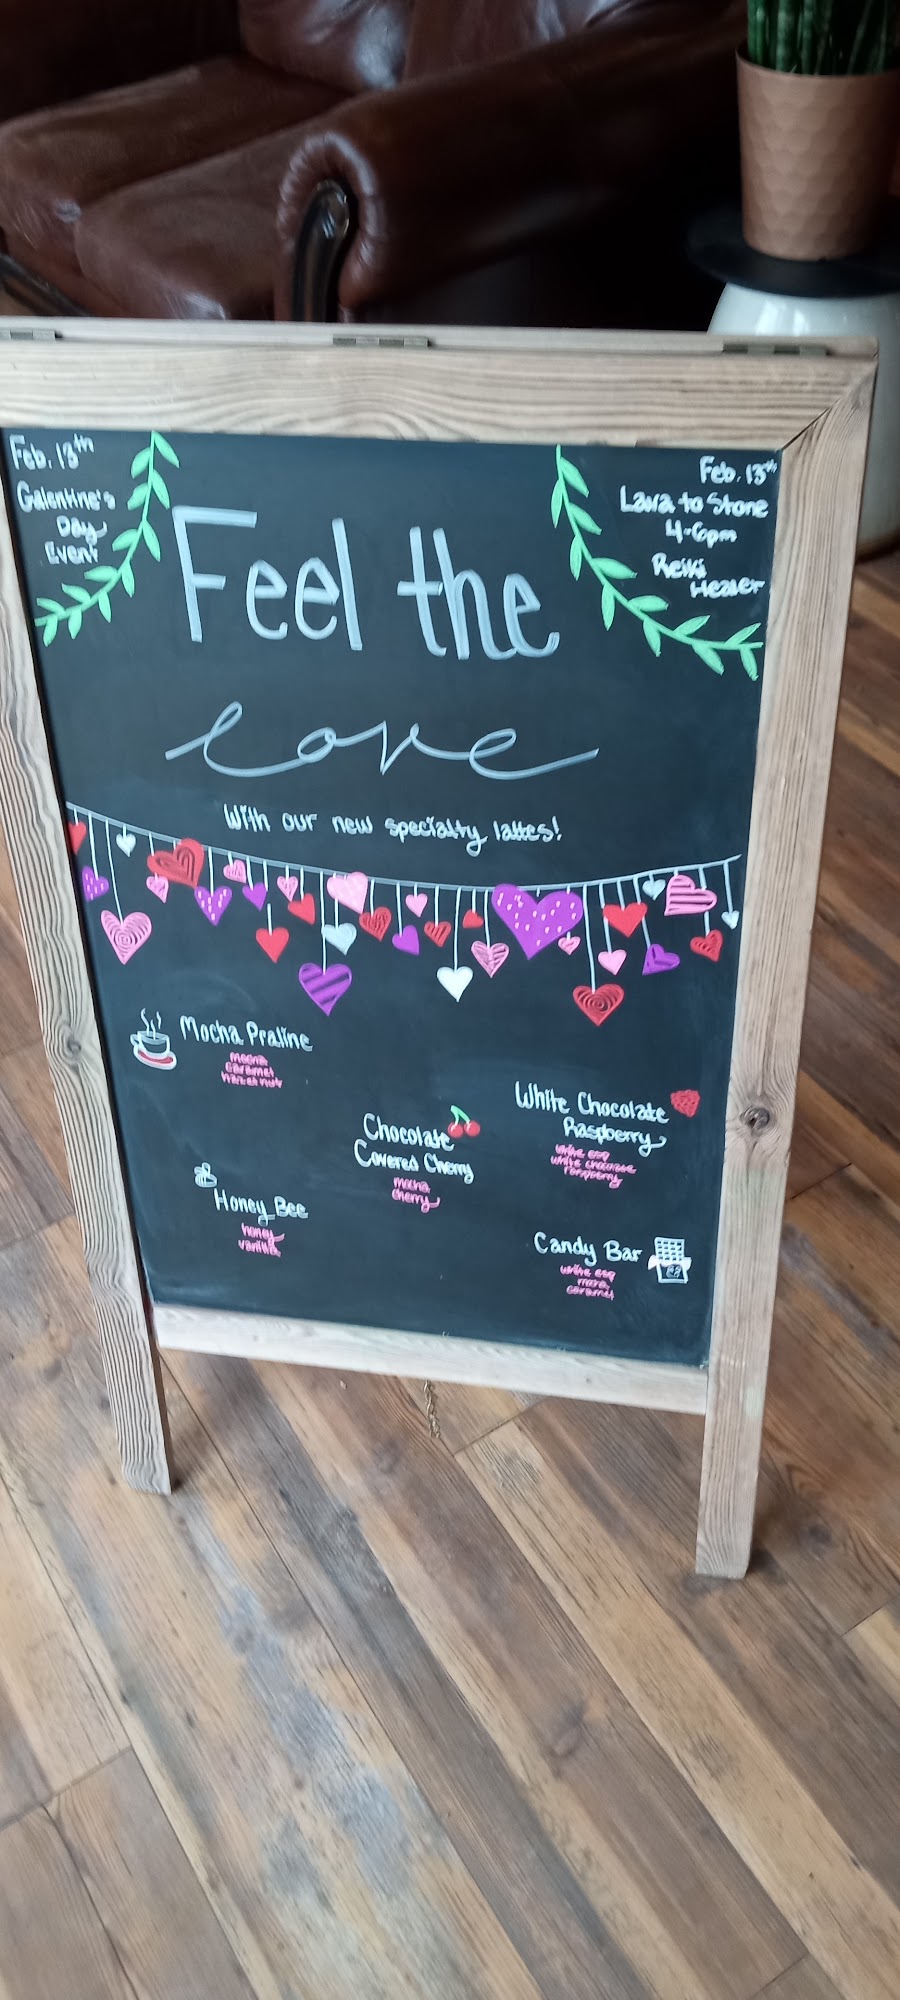 Feb. 13th
Galentine's
Day
Event
Feb. 13th
Lava to Stone
4-6pm
Reiki
Healer
Feel the
love
With our new specialty lattes!
Mocha Praline
mocha
caramel
hazelnut
White Chocolate
Raspberry
white esp
white chocolate
raspberry
Chocolate
Covered Cherry
mocha
cherry
Honey Bee
honey
vanilla
Candy Bar
white esp
mocha
caramel